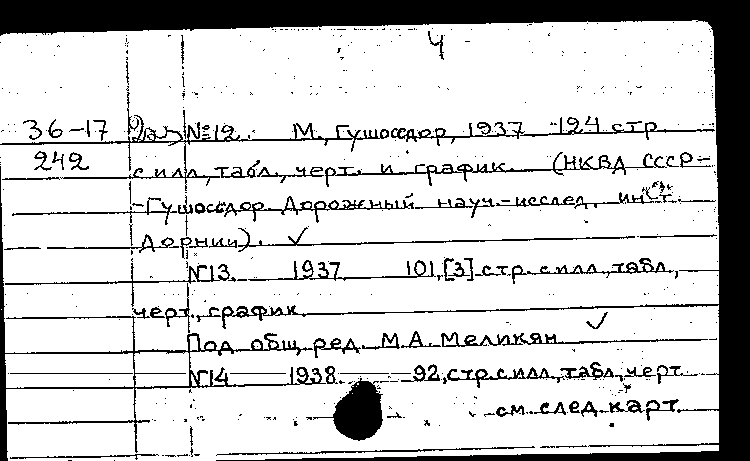 4
36-17 №12. М., Гушосдор, 1937 -124 стр.
242 с илл., табл., черт. и график. (НКВД СССР-
-Гушосдор. Дорожный науч.-исслед. инст.
Дорнии). ✓
№13. 1937 101,[3] стр. с илл., табл.,
черт., график.
Под общ. ред. М.А. Меликян ✓
№14 1938. 92, стр. с илл., табл., черт.
см. след. карт.